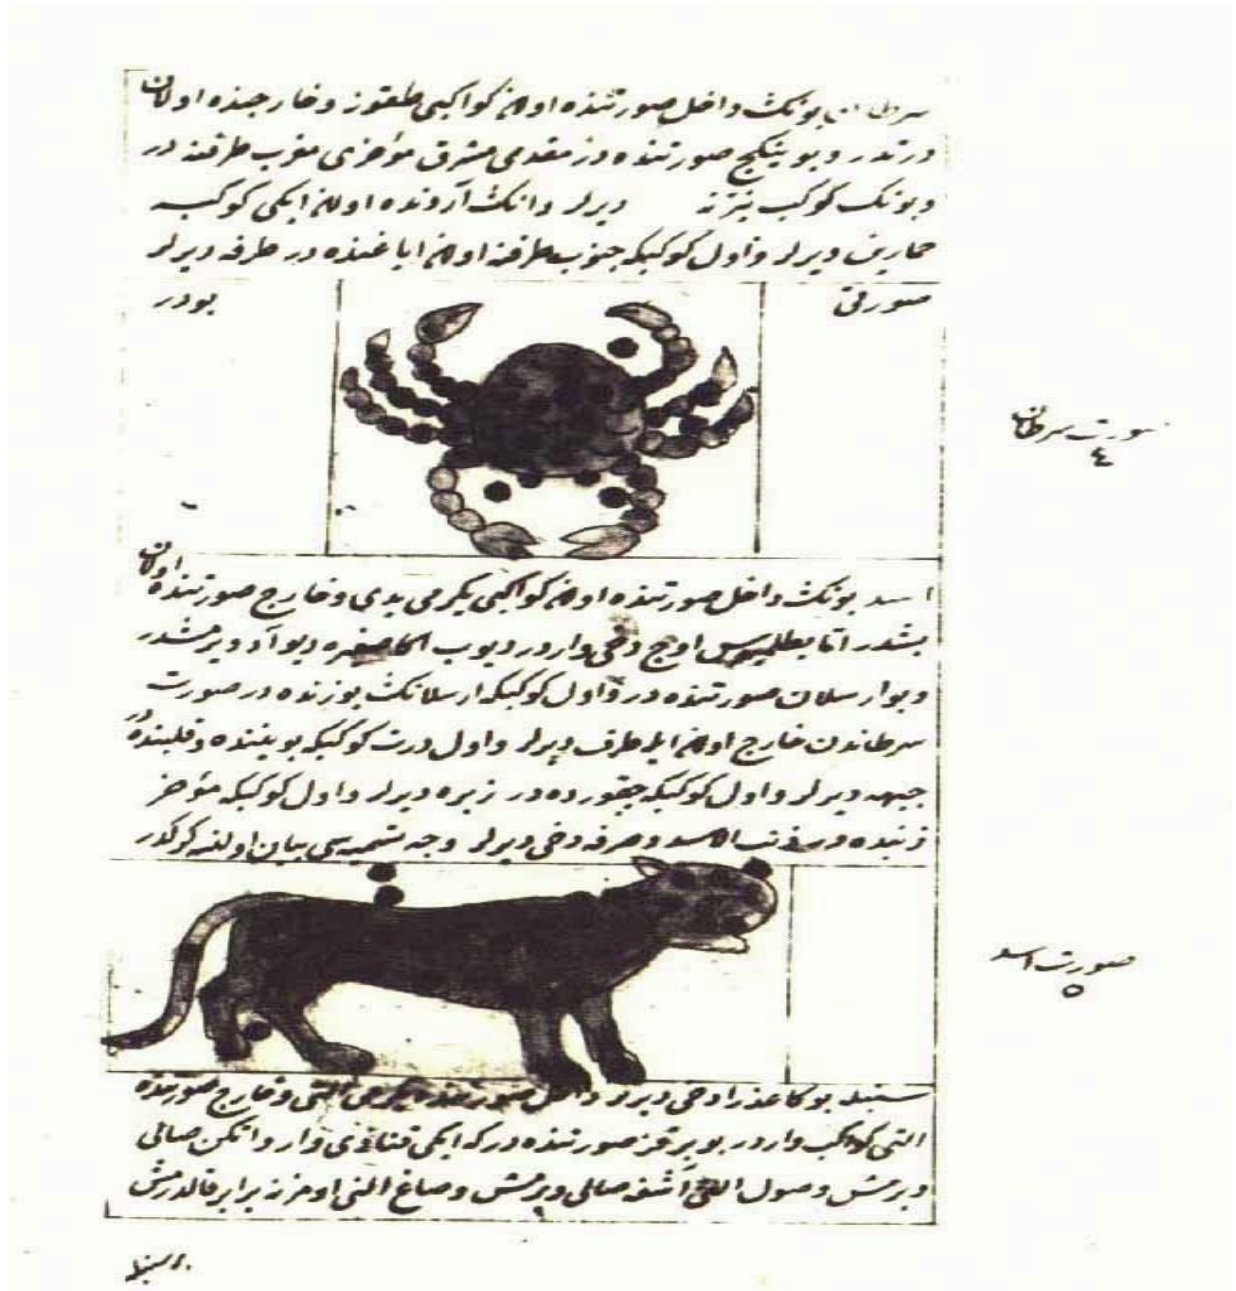 سرطان بونك داخل صورتنده اولان كواكبى طقوز و خارجنده اولان
درتدر و بو ينكج صورتنده در مقدمى مشرق مؤخرى مغرب طرفنده در
و بونك كوكب ديرلر و انك آردنده اولان ايكى كوكبه
حمارين ديرلر و اول كوكبكه جنوب طرفنده اولان اياغنده در طرفه ديرلر
صورتى
بودر
صورت سرطان
٤
اسد بونك داخل صورتنده اولان كواكبى يكرمى يدى و خارج صورتنده اولان
بشدر اما بطلميوس اوچ دخى واردر ديوب صفيره ديو آد ويرمشدر
و بو ارسلان صورتنده در و اول كوكبكه ارسلانك يوزنده در صورت
سرطاندن خارج اولان ايله طرف ديرلر و اول درت كوكبكه بويننده و قلبنده در
جبهه ديرلر و اول كوكبكه در زبره ديرلر و اول كوكبكه مؤخر
ذنبنده در ذنب الاسد و صرفه دخى ديرلر وجه تسميه سى بيان اولنه كركدر
صورت اسد
٥
سنبله بوكا عذرا دخى ديرلر داخل صورتنده يكرمى التى و خارج صورتنده
التى كوكب واردر بو بر قز صورتنده در كه ايكى قنادى وار و اتكن صالى
ويرمش و صول الن آشغه صالى ويرمش و صاغ النى اومزنه برابر قالدرمش